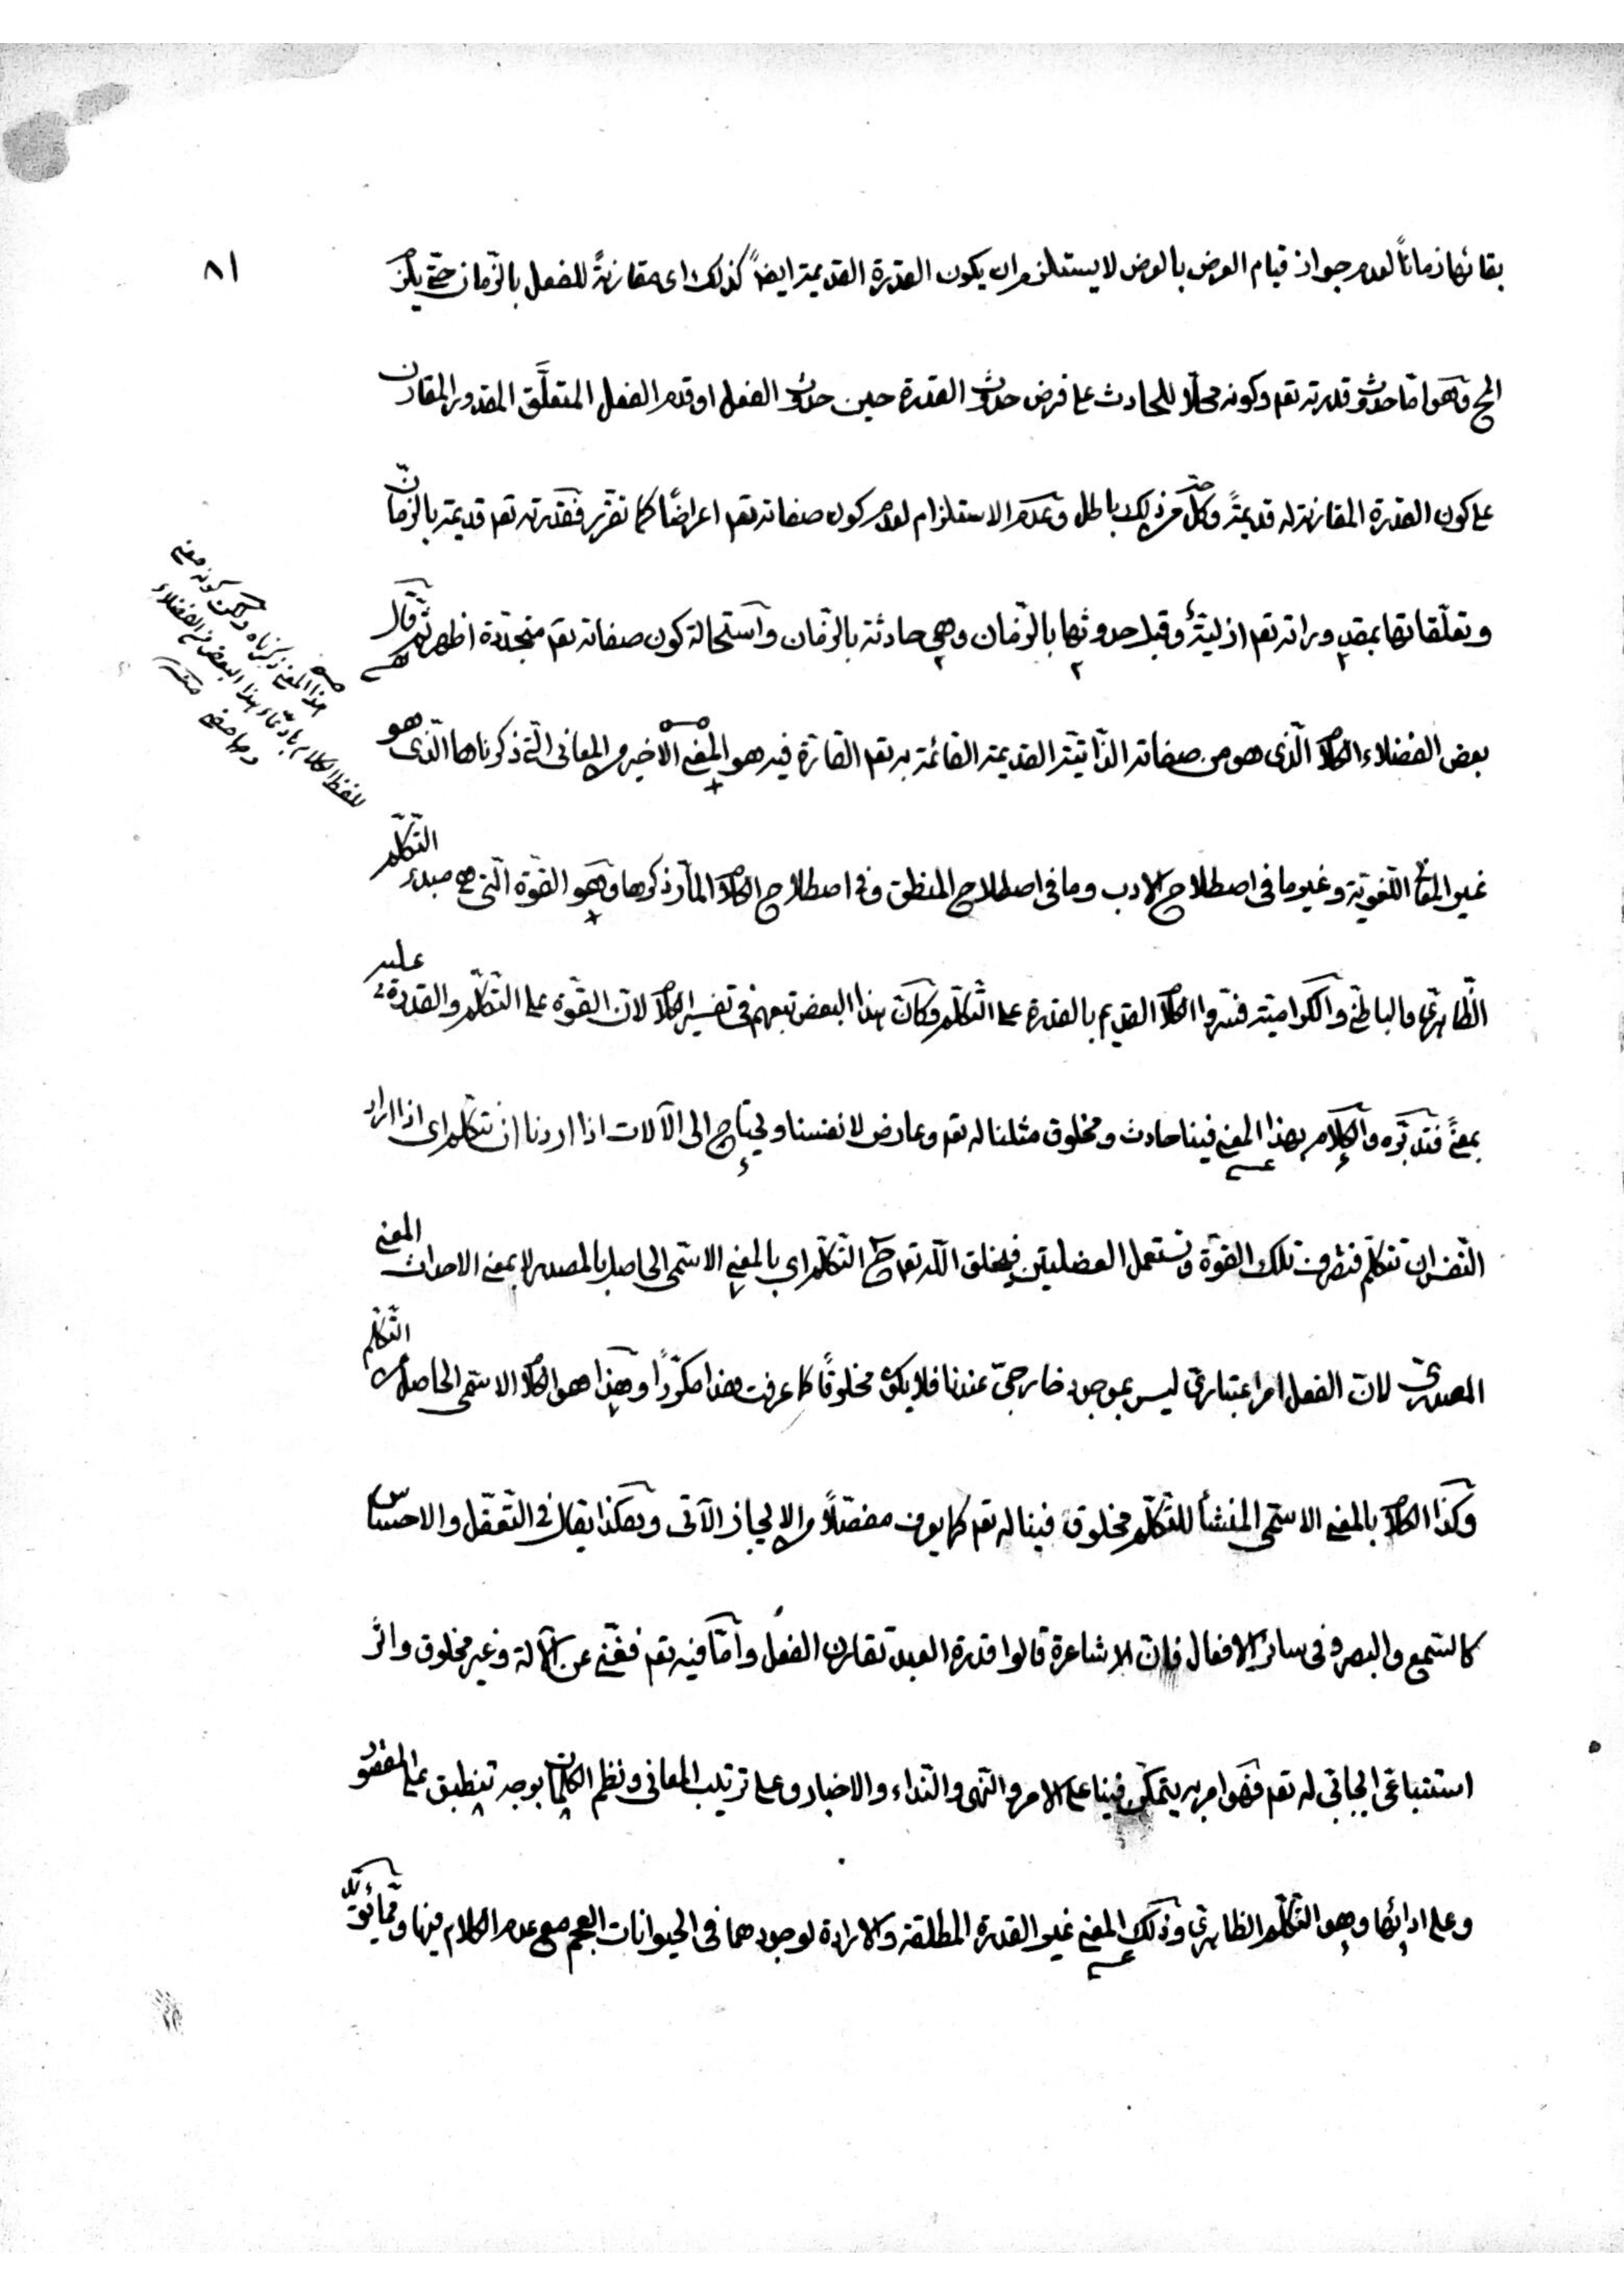 ٨١
بقائها زماناً لعدم جواز قيام العرض بالعرض لا يستلزم ان يكون القدرة القديمة ايضاً كذلك اى مقارنةً للفعل بالزّمان حتّى يلزم
المح وهو امّا حدوث قدرته تعم وكونه محلّا للحادث على فرض حدوث القدرة حين حدوث الفعل او قدم الفعل المتعلَّق المقدور المقارن
على كون القدرة المقارنة له قديمةً وكلّ من ذلك باطل وعدم الاستلزام لعدم كون صفاته تعم اعراضًا كما تقرّر فقدرته تعم قديمة بالزّمان
وتعلّقاتها بمقدوراته تعم ازليّة وقبل حدوثها بالزّمان وهى حادثة بالزّمان واستحالة كون صفاته تعم متجدّدة اظهر ثمّ قال
بعض الفضلاء الكلام الّذى هو من صفاته الذّاتيّة القديمة القائمة به تعم القارّة فيه هو المعنى الاخير من المعانى الّتى ذكرناها الّذى هو
غير المعانى اللّغويّة وغير ما فى اصطلاح الادب وما فى اصطلاح المنطق وفى اصطلاح الكلام المارّ ذكرها وهو القوّة الّتى هى مبدء التّكلّم
الظّاهرىّ والباطنىّ والكراميّة فسّروا الكلام القديم بالقدرة على التّكلّم وكانّ هذا البعض تبعهم فى تفسير الكلام لانّ القوّة على التّكلّم والقدرة عليه
بمعنًى فتدبّره والكلام بهذا المعنى فينا حادث ومخلوق مثلنا له تعم وعارض لانفسنا ويحتاج الى الآلات اذا اردنا ان نتكلّم اى اذا اراد
النّفس ان تتكلّم فتصرف تلك القوّة وتستعمل العضلتين فيخلق اللّه تعم ح التّكلّم اى بالمعنى الاسمى الحاصل بالمصدر لا بمعنى الاحداث المعنى
المصدرىّ لانّ الفعل امر اعتبارىّ ليس بموجود خارجىّ عندنا فلا يكون مخلوقًا كما عرفت هذا مكرّرًا وهذا هو الكلام الاسمى الحاصل من التّكلّم
وكذا الكلام بالمعنى الاسمى المنشأ للتّكلّم مخلوق فينا له تعم كما يعرف مفصّلًا من الايجاز الآتى وهكذا يقال فى التّعقّل والاحساس
كالسّمع والبصر وفى سائر الافعال فانّ الاشاعرة قالوا قدرة العبد تقارن الفعل وامّا فيه تعم فغنىّ عن الآلة وغير مخلوق واثر
ايجابى له تعم فهو امر به يتمكّن فينا على الامر والنّهى والنّداء والاخبار وعلى ترتيب المعانى ونظم الكلمات بوجه تنطبق على المقصود
وعلى ادائها وهو التّكلّم الظاهرىّ وذلك المعنى غير القدرة المطلقة والارادة لوجودهما فى الحيوانات العجم مع عدم الكلام فيها وممّا
هذا المعنى ذكرناه ولكن كونه معنى
للفظ الكلام بادّعاء هذا البعض من الفضلاء